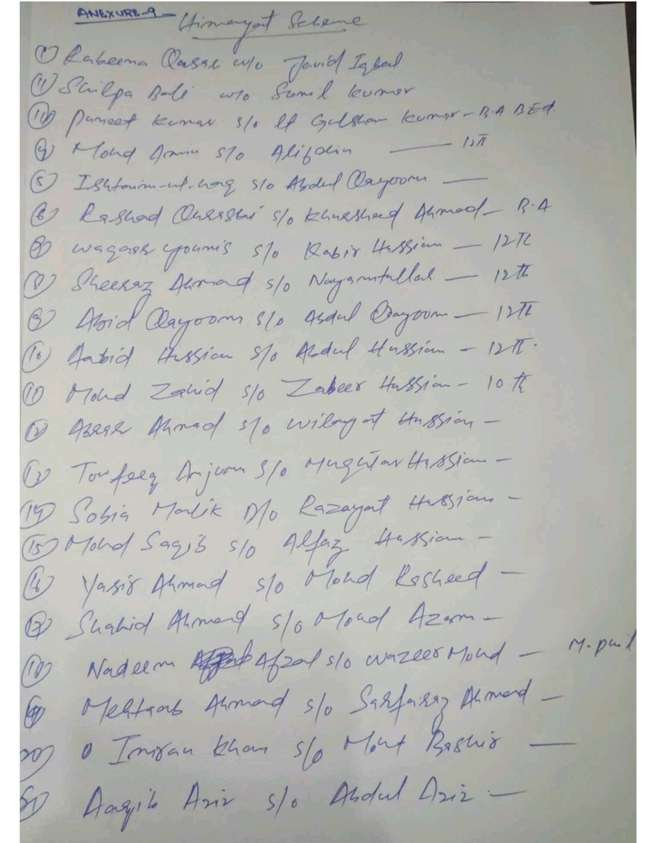 ANEXURE-9
Himayat Scheme
① Rabeena Qasar w/o Javid Iqbal
⑪ Shilpa Bali w/o Sunil Kumar
⑪ Puneet Kumar s/o Lt Gulshan Kumar - B.A BEd
④ Mohd Amin s/o Alifdin — 12th
⑤ Ishtaim-ul-haq s/o Abdul Qayoom —
⑥ Rashad Qurashi s/o Khurshad Ahmad - B.A
⑦ Waqar Younis s/o Kabir Hussian — 12th
⑧ Sheeraz Ahmad s/o Nayamtullah — 12th
⑨ Abid Qayoom s/o Abdul Qayoom — 12th
⑩ Aabid Hussian s/o Abdul Hussian - 12th
⑪ Mohd Zahid s/o Zabeer Hussian - 10th
⑫ Ahmad s/o Wilayat Hussian -
⑬ Toufeeq Anjum s/o Muqhtar Hussian -
⑭ Sobia Malik D/o Razayat Hussian -
⑮ Mohd Saqib s/o Alfaz Hussian -
⑯ Yasir Ahmad s/o Mohd Rasheed —
⑰ Shahid Ahmad s/o Mohd Azam -
⑱ Nadeem Afzal s/o Wazeer Mohd — M.phil
⑲ Mehtaab Ahmad s/o Sarfaraz Ahmad -
⑳ Imran Khan s/o Mohd Bashir —
㉑ Aaqib Aziz s/o Abdul Aziz —